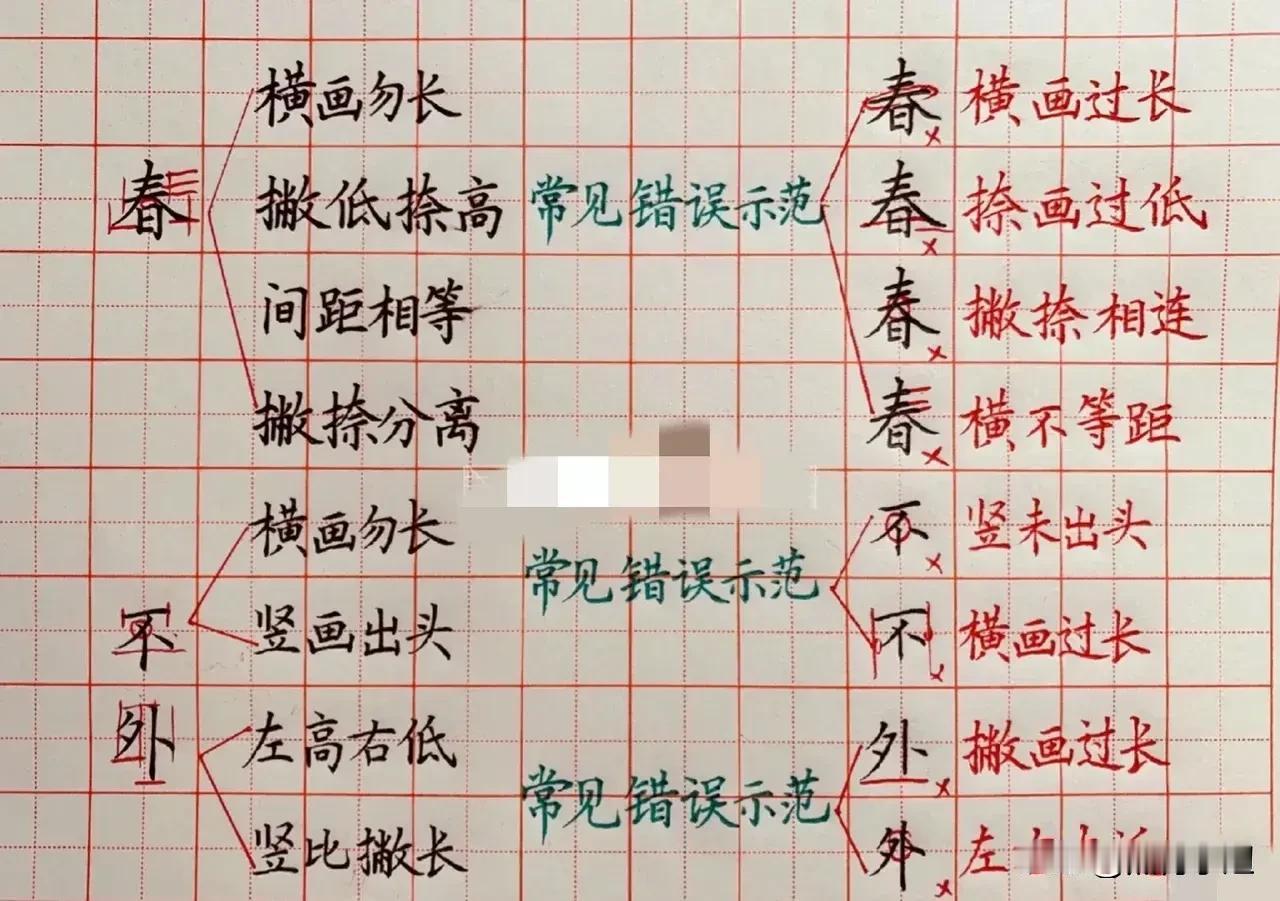 横画勿长
春 撇低捺高
间距相等
撇捺分离
常见错误示范
春 横画过长
春 捺画过低
春 撇捺相连
春 横不等距
不 横画勿长
竖画出头
常见错误示范
不 竖未出头
不 横画过长
外 左高右低
竖比撇长
常见错误示范
外 撇画过长
外 左